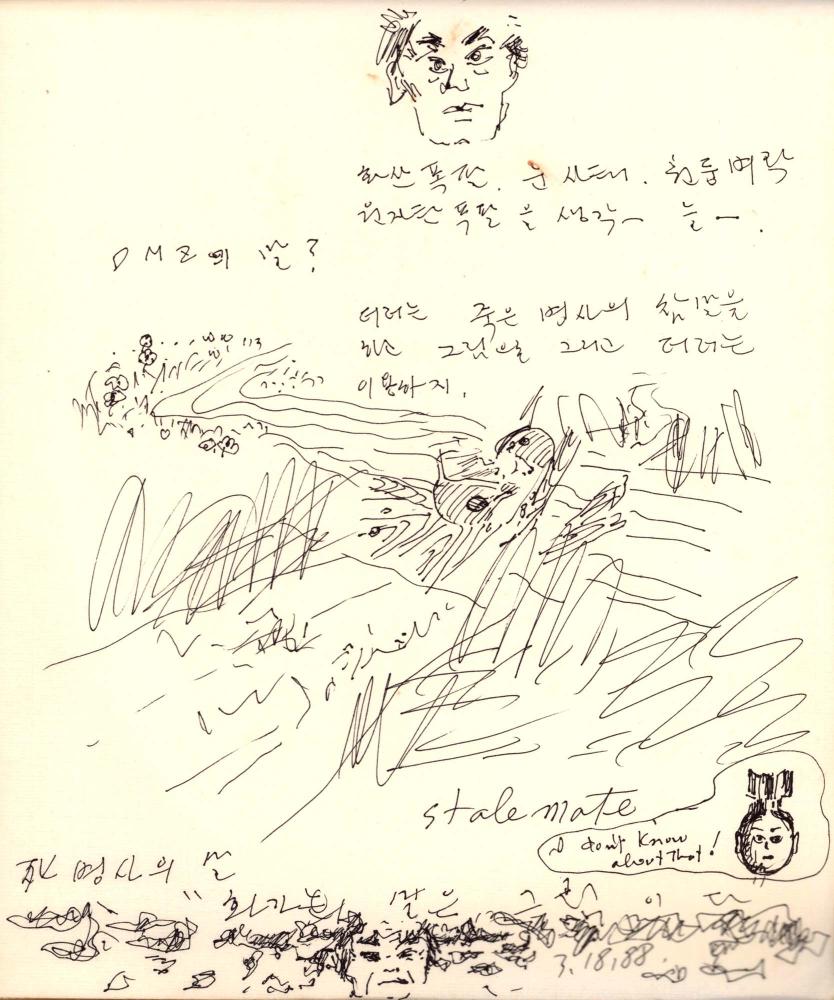 화산 폭팔. 눈사태. 천둥벼락
원자탄 폭팔을 생각— 늘—.
DMZ의 말?
더러는 죽은 병사의 참말을
하고 그림으로 그리고 더러는
이용하지.
stalemate
I don't know
about that!
死 병사의 말
"화가는 말은 그림이다
3.18.88.